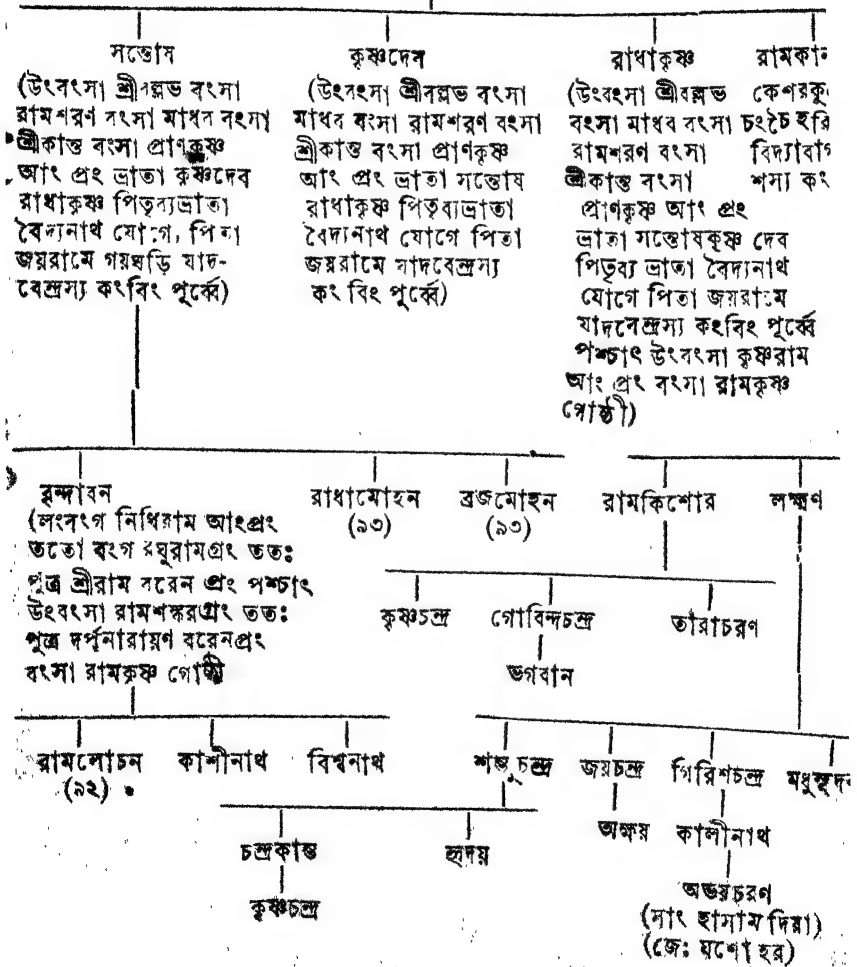 সন্তোষ
(উংবংস্য শ্রীবল্লভ বংস্য
রামশরণ বংস্য মাধব বংস্য
শ্রীকান্ত বংস্য প্রাণকৃষ্ণ
আং প্রং ভ্রাতা কৃষ্ণদেব
রাধাকৃষ্ণ পিতৃব্যভ্রাতা
বৈদ্যনাথ যোগে, পিতা
জয়রামে গয়ঘড়ি যাদ-
বেন্দ্রস্য কংবিং পূর্ব্বে)
কৃষ্ণদেব
(উংবংস্য শ্রীবল্লভ বংস্য
মাধব বংস্য রামশরণ বংস্য
শ্রীকান্ত বংস্য প্রাণকৃষ্ণ
আং প্রং ভ্রাতা সন্তোষ
রাধাকৃষ্ণ পিতৃব্যভ্রাতা
বৈদ্যনাথ যোগে পিতা
জয়রামে যাদবেন্দ্রস্য
কং বিং পূর্ব্বে)
রাধাকৃষ্ণ
(উংবংস্য শ্রীবল্লভ
বংস্য মাধব বংস্য
রামশরণ বংস্য
শ্রীকান্ত বংস্য
প্রাণকৃষ্ণ আং প্রং
ভ্রাতা সন্তোষকৃষ্ণ দেব
পিতৃব্য ভ্রাতা বৈদ্যনাথ
যোগে পিতা জয়রামে
যাদবেন্দ্রস্য কংবিং পূর্ব্বে
পশ্চাৎ উংবংস্য কৃষ্ণরাম
আং প্রং বংস্য রামকৃষ্ণ
গোষ্ঠী)
রামকান
কেশরকু
চংচৈ হরি
বিদ্যাবাগ
শস্য কং
বৃন্দাবন
(লংবংগ নিধিরাম আংপ্রং
ততো বংগ রঘুরামপ্রং ততঃ
পুত্র শ্রীরাম বরেন প্রং পশ্চাৎ
উংবংস্য রামশঙ্করপ্রং ততঃ
পুত্র দর্পনারায়ণ বরেনপ্রং
বংস্য রামকৃষ্ণ গোষ্ঠী
রাধামোহন
(৯৩)
ব্রজমোহন
(৯৩)
রামকিশোর
লক্ষ্মণ
কৃষ্ণচন্দ্র
গোবিন্দচন্দ্র
তারাচরণ
ভগবান
রামলোচন
(৯২)
কাশীনাথ
বিশ্বনাথ
শম্ভুচন্দ্র
জয়চন্দ্র
গিরিশচন্দ্র
মধুসূদন
অক্ষয়
কালীনাথ
চন্দ্রকান্ত
হৃদয়
কৃষ্ণচন্দ্র
অভয়চরণ
(সাং হাসামদিয়া)
(জেঃ যশোহর)